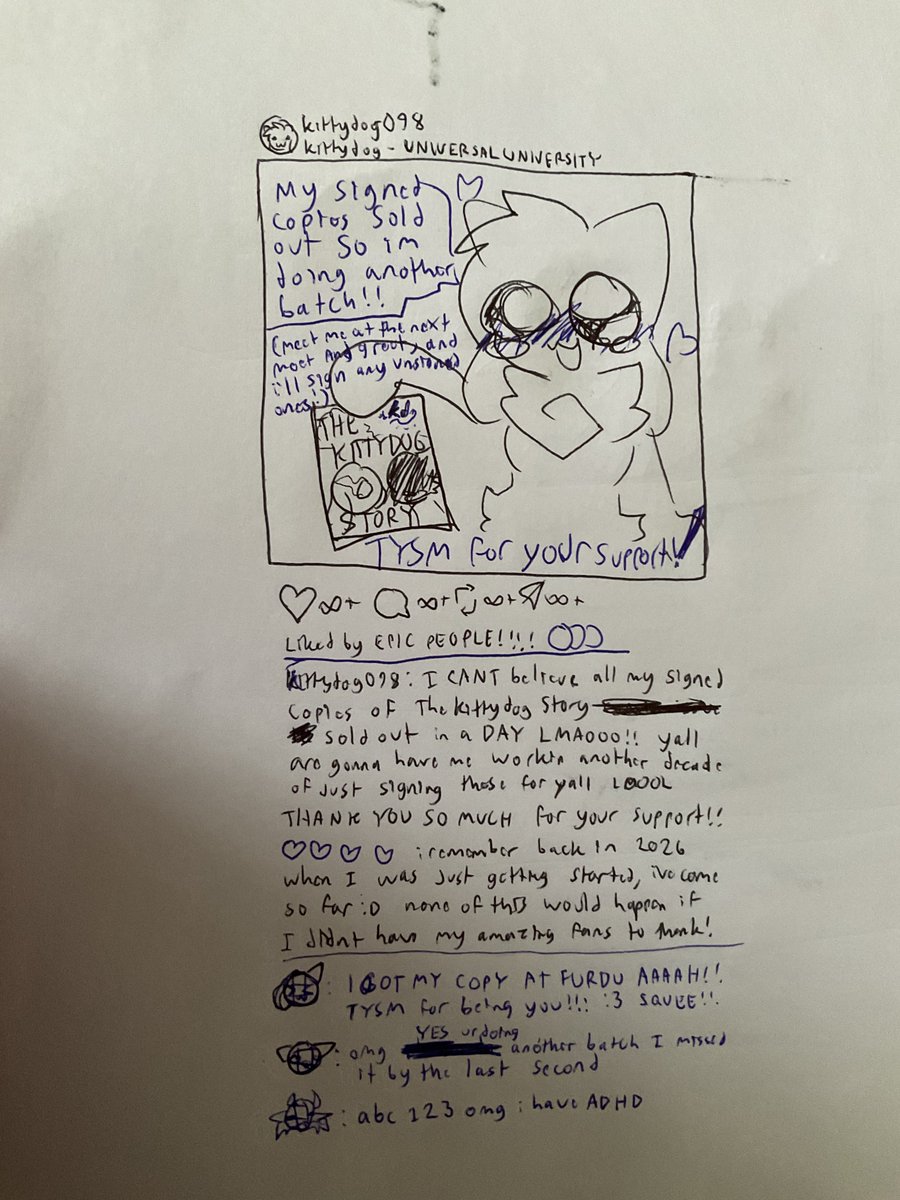 kittydog098
kittydog - UNIVERSAL UNIVERSITY
My signed
copies sold
out so im
doing another
batch!!
(meet me at the next
meet and greet, and
i'll sign any unsigned
ones!:)
THE
KITTYDOG
STORY
TYSM for your support!
∞+ ∞+ ∞+ ∞+
Liked by EPIC PEOPLE!!!!
kittydog098: I CANT believe all my signed
copies of The kittydog Story
sold out in a DAY LMAOOO!! yall
are gonna have me workin another decade
of just signing these for yall LOOOL
THANK YOU SO MUCH for your support!!
i remember back in 2026
when I was just getting started, ive come
so far :D none of this would happen if
I didnt have my amazing fans to thank!
: I GOT MY COPY AT FURDU AAAAH!!
TYSM for being you!!! :3 SQUEE!!
: omg YES ur doing another batch I missed
it by the last second
: abc 123 omg i have ADHD